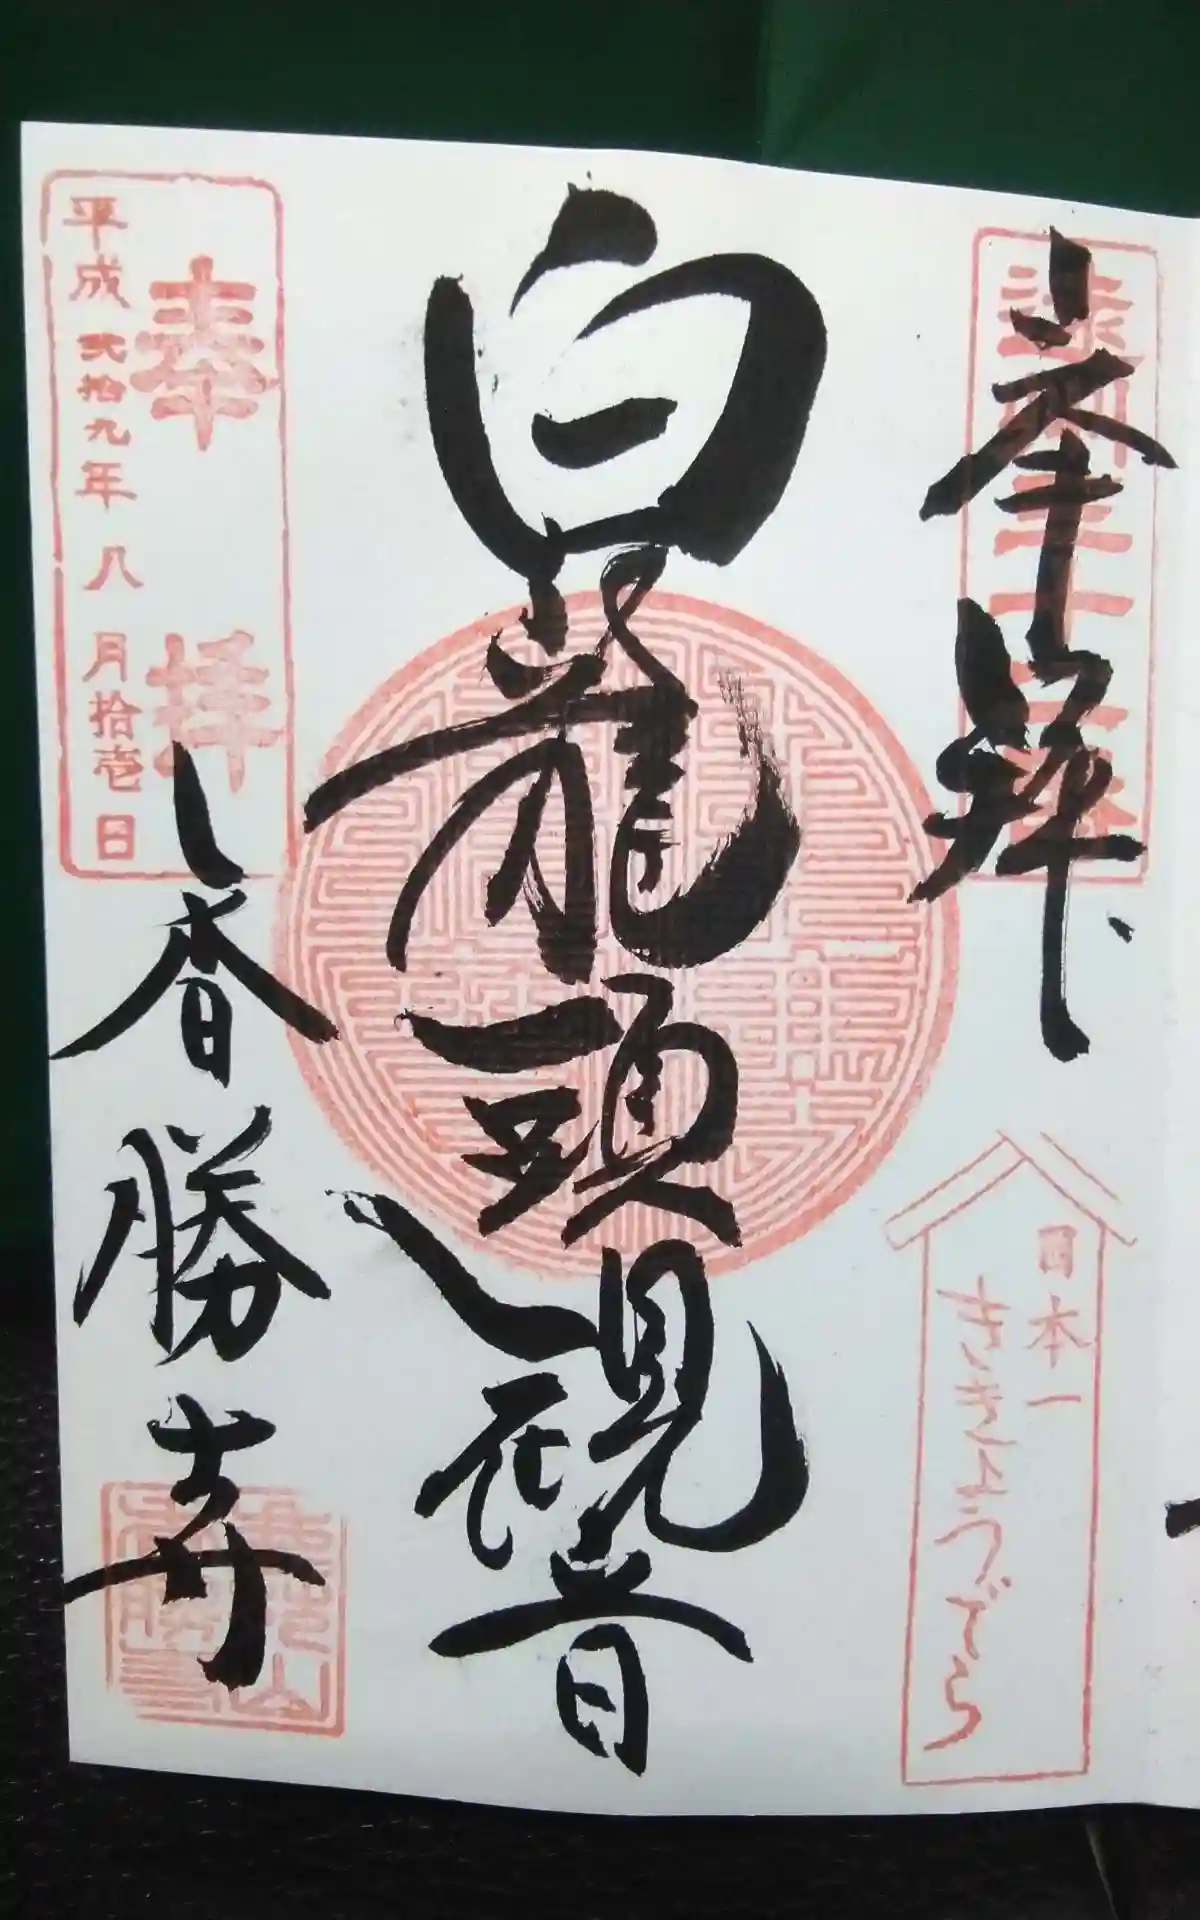 奉拝
遠州三十三
日本一
ききょうでら
白龍頭観音
奉拝
平成弐拾九年八月拾壱日
香勝寺